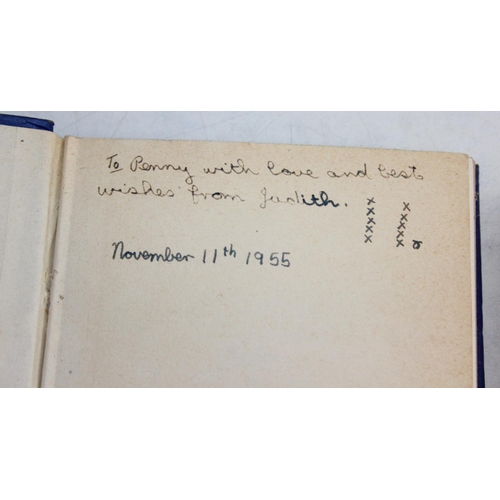 To Penny with love and best
wishes from Judith.
x x
x x
x x
x x
x x
November 11th 1955